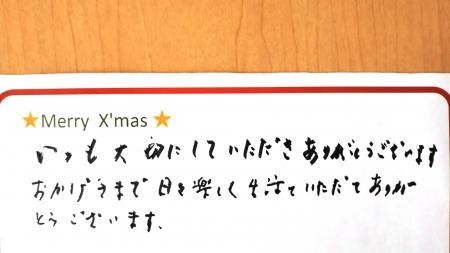 ★Merry X'mas★
いつも大切にしていただきありがとうございます
おかげさまで日々楽しく生活ていただてありが
とうございます。